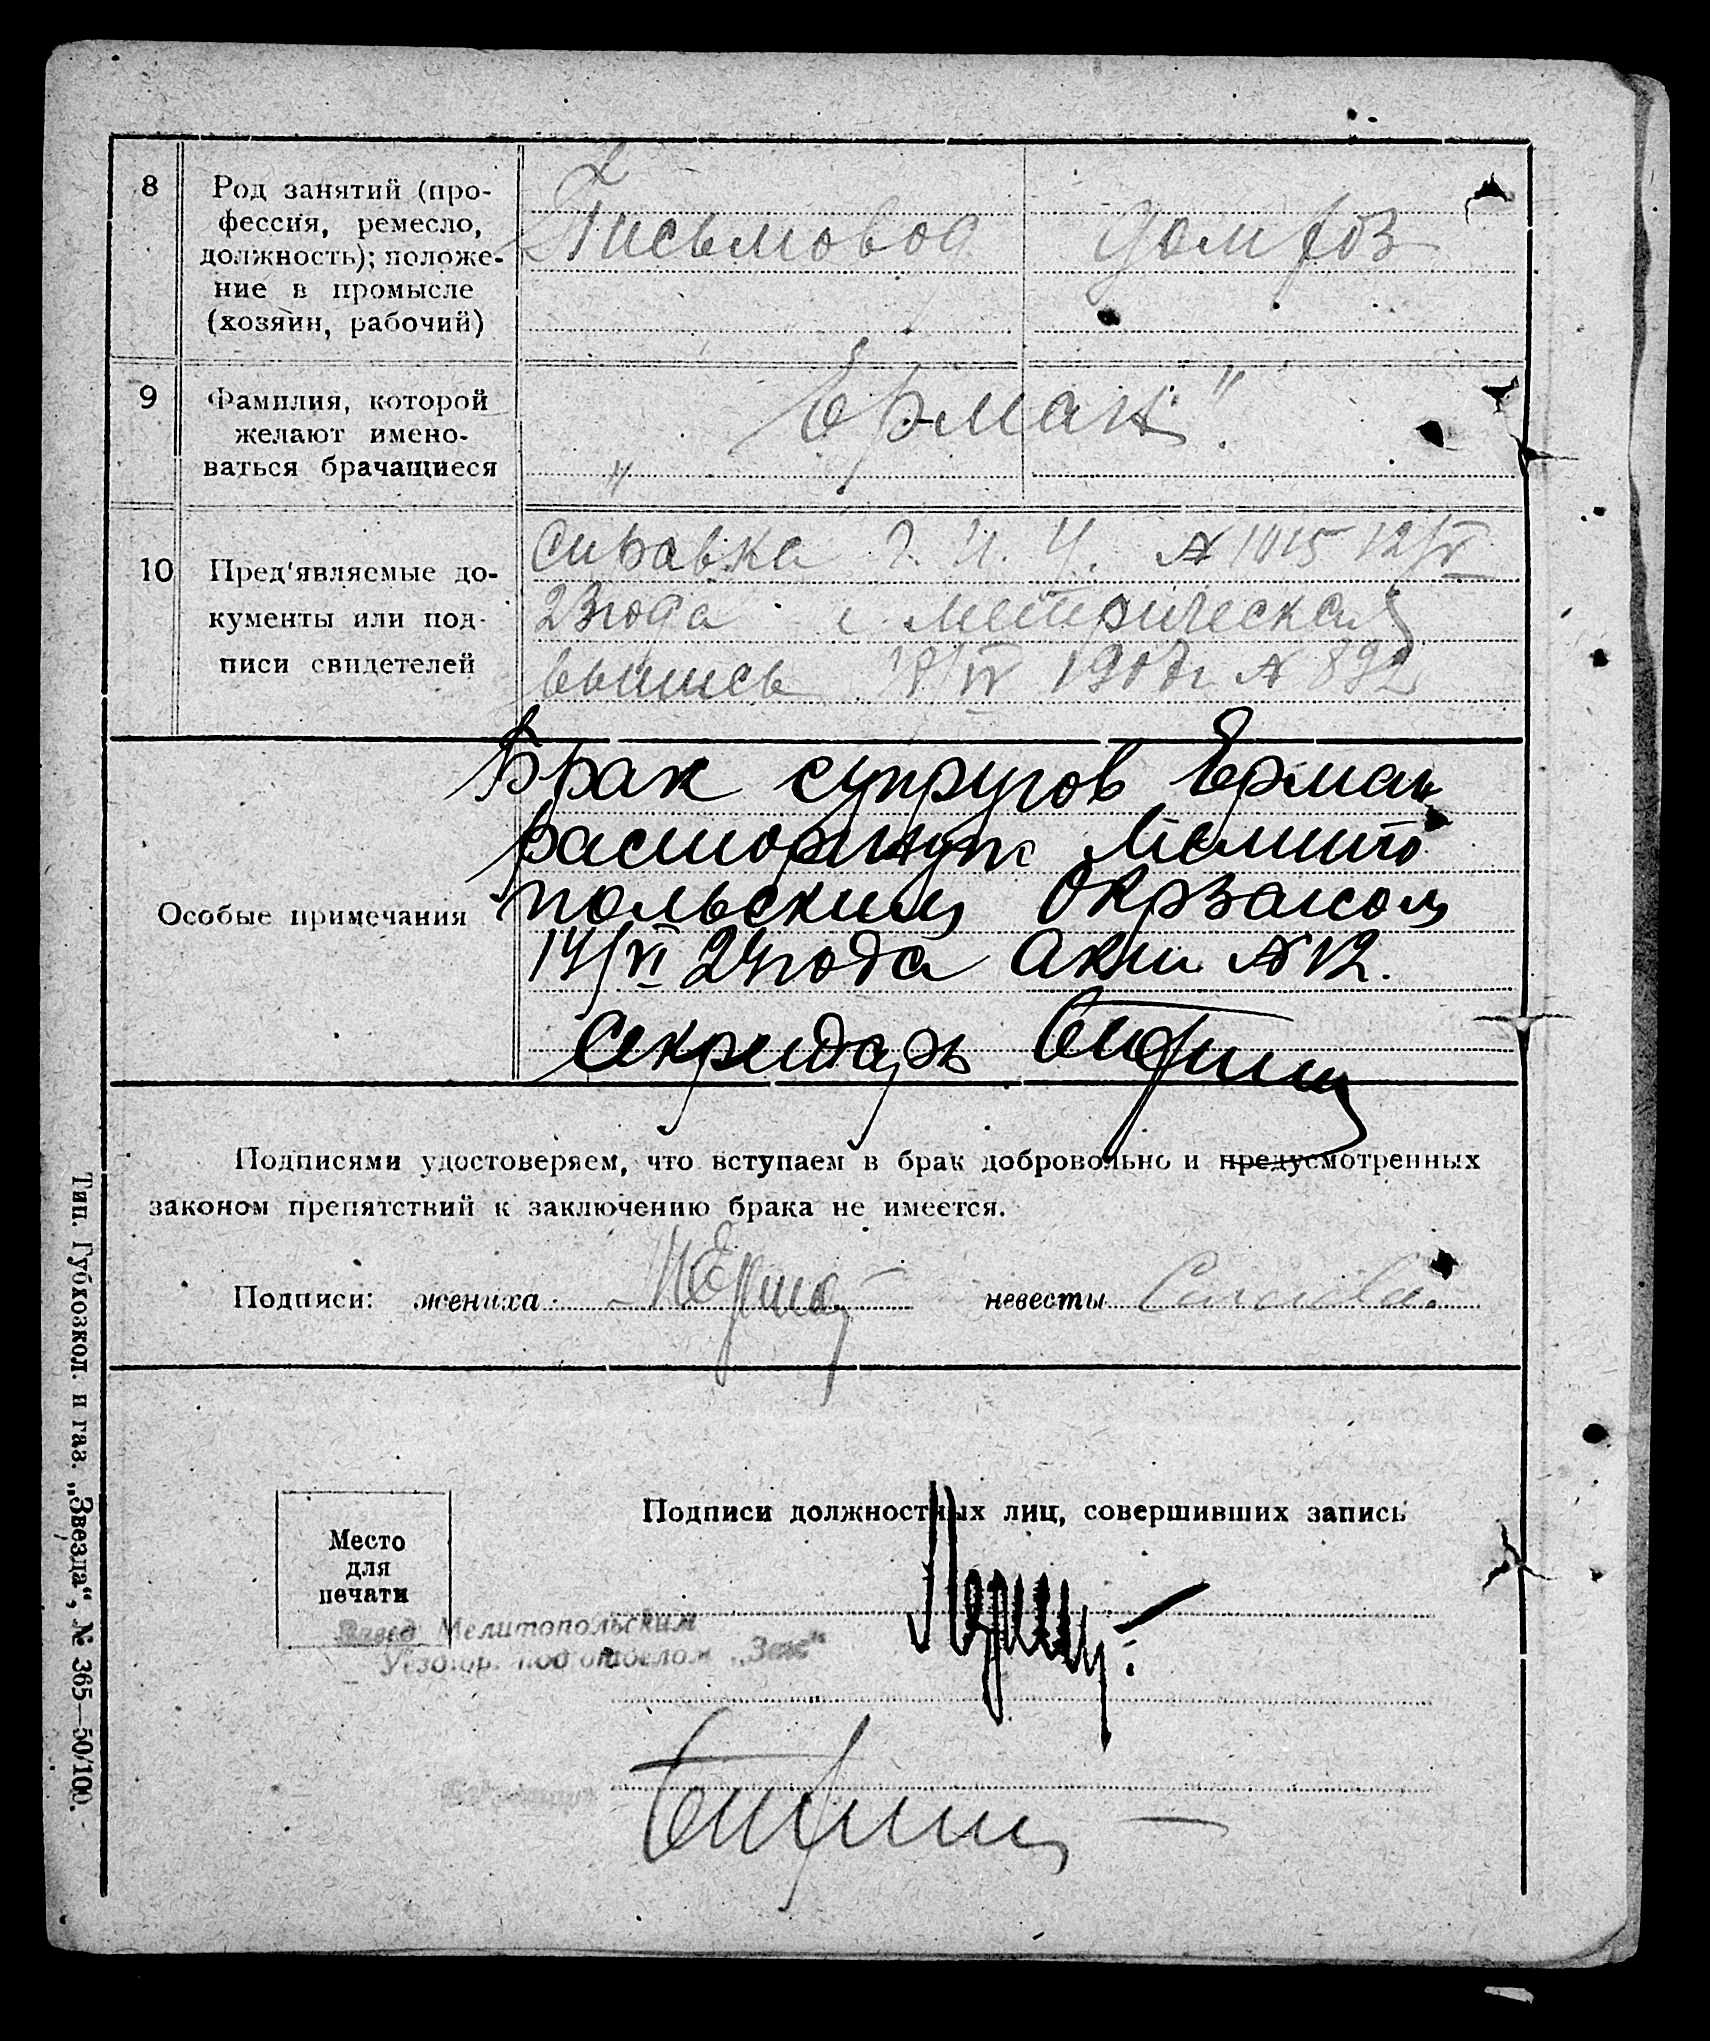 8 Род занятий (про-
фессия, ремесло,
должность); положе-
ние в промысле
(хозяин, рабочий)
Письмовод
домхоз
9 Фамилия, которой
желают имено-
ваться брачащиеся
„Ерман".
10 Пред'являемые до-
кументы или под-
писи свидетелей
справка № 1015 12/V
23 года и метрическая
выпись 18/IV № 892
Особые примечания
Брак супругов Ерман
расторгнут Мелито
польским Окрзагсом
14/VI 24 года Акт № 12.
Секретарь
Подписями удостоверяем, что вступаем в брак добровольно и предусмотренных
законом препятствий к заключению брака не имеется.
Подписи: жениха невесты
Подписи должностных лиц, совершивших запись
Место
для
печати
Завед Мелитопольским
Уездгор. подотделом „Загс"
Тип. Губкозкол. и газ. „Звезда", № 365—50/100.